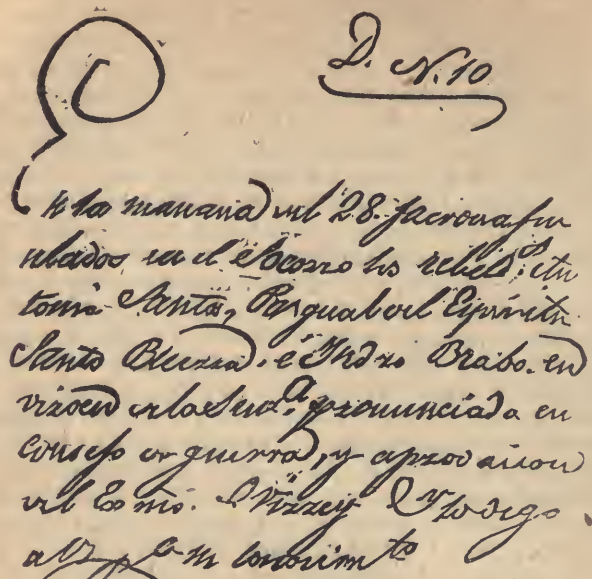 D. N. 10
En la manana del 28. fueron fu
silados en el Socorro los rebeld.es An
tonio Santos, Pasqual del Espiritu
Santo Becerra, é Isidro Brabo. en
virtud de la Sen.a pronunciada en
consejo de guerra, y aprovacion
del Exmo. S. Virrey. Y lo digo
a V. p.a su conocim.to